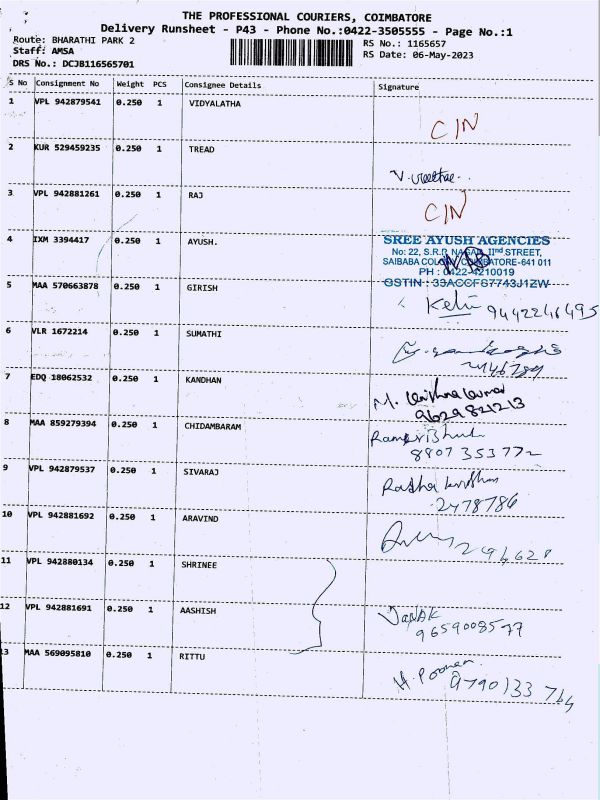 THE PROFESSIONAL COURIERS, COIMBATORE
Delivery Runsheet - P43 - Phone No.:0422-3505555 - Page No.:1
Route: BHARATHI PARK 2
Staff: AMSA
DRS No.: DCJB116565701
RS No.: 1165657
RS Date: 06-May-2023
S No Consignment No Weight PCS Consignee Details Signature
1 VPL 942879541 0.250 1 VIDYALATHA
CIN
2 KUR 529459235 0.250 1 TREAD
3 VPL 942881261 0.250 1 RAJ
CIN
4 IXM 3394417 0.250 1 AYUSH.
SREE AYUSH AGENCIES
No: 22, S.R.P. NAGAR, IInd STREET,
SAIBABA COLONY, COIMBATORE-641 011
PH : 0422-4210019
GSTIN : 33ACCFS7743J1ZW
5 MAA 570663878 0.250 1 GIRISH
9442246495
6 VLR 1672214 0.250 1 SUMATHI
7 EDQ 18062532 0.250 1 KANDHAN
M. Krishna kumar
9629821213
8 MAA 859279394 0.250 1 CHIDAMBARAM
8907353772
9 VPL 942879537 0.250 1 SIVARAJ
Radha
2478786
10 VPL 942881692 0.250 1 ARAVIND
11 VPL 942880134 0.250 1 SHRINEE
12 VPL 942881691 0.250 1 AASHISH
JANAK
9659008577
13 MAA 569095810 0.250 1 RITTU
H. Poonam
9790133764